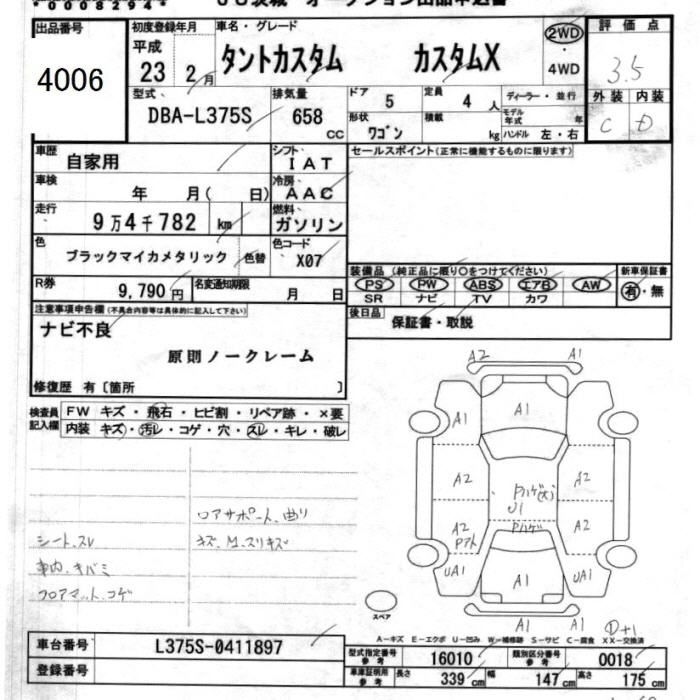 *00082944*
JU茨城 オークション出品申込書
出品番号
4006
初度登録年月
平成
23 2月
車名・グレード
タントカスタム カスタムX
2WD
・
4WD
評価点
3.5
外装 内装
C D
型式
DBA-L375S
排気量
658
CC
ドア
5
定員
4 人
ディーラー・並行
形状
ワゴン
積載
kg
モデル年式
年
ハンドル 左・右
車歴
自家用
シフト
IAT
車検
年 月( 日)
冷房
AAC
走行
9万4千782 km
燃料
ガソリン
色
ブラックマイカメタリック
色替
色コード
X07
R券
9,790円
名変通知期限
月 日
セールスポイント(正常に機能するものに限ります)
装備品 (純正品に限り○をつけてください)
PS PW ABS エアB AW
SR ナビ TV カワ
新車保証書
有・無
後日品
保証書・取説
注意事項申告欄(不具合内容等は具体的に記入して下さい)
ナビ不良
原則ノークレーム
修復歴 有〔箇所 〕
検査員記入欄
FW キズ・飛石・ヒビ割・リペア跡・×要
内装 キズ・汚レ・コゲ・穴・スレ・キレ・破レ
シート、スレ
車内、キバミ
フロアマット、コゲ
ロアサポート、曲り
キズ、M、スリキズ
A2 A1
A1 A1 A1
A2 A2
Pハゲ(大)
U1
A2
Pアト
Pハゲ
A2
UA1 A1 UA1
A1 A1
スペア
A-キズ E-エクボ U-凹み W-補修跡 S-サビ C-腐食 XX-交換済
車台番号
L375S-0411897
登録番号
型式指定番号
参考
16010
類別区分番号
参考
0018
車庫証明用
参考
長さ
339 cm
幅
147 cm
高さ
175 cm